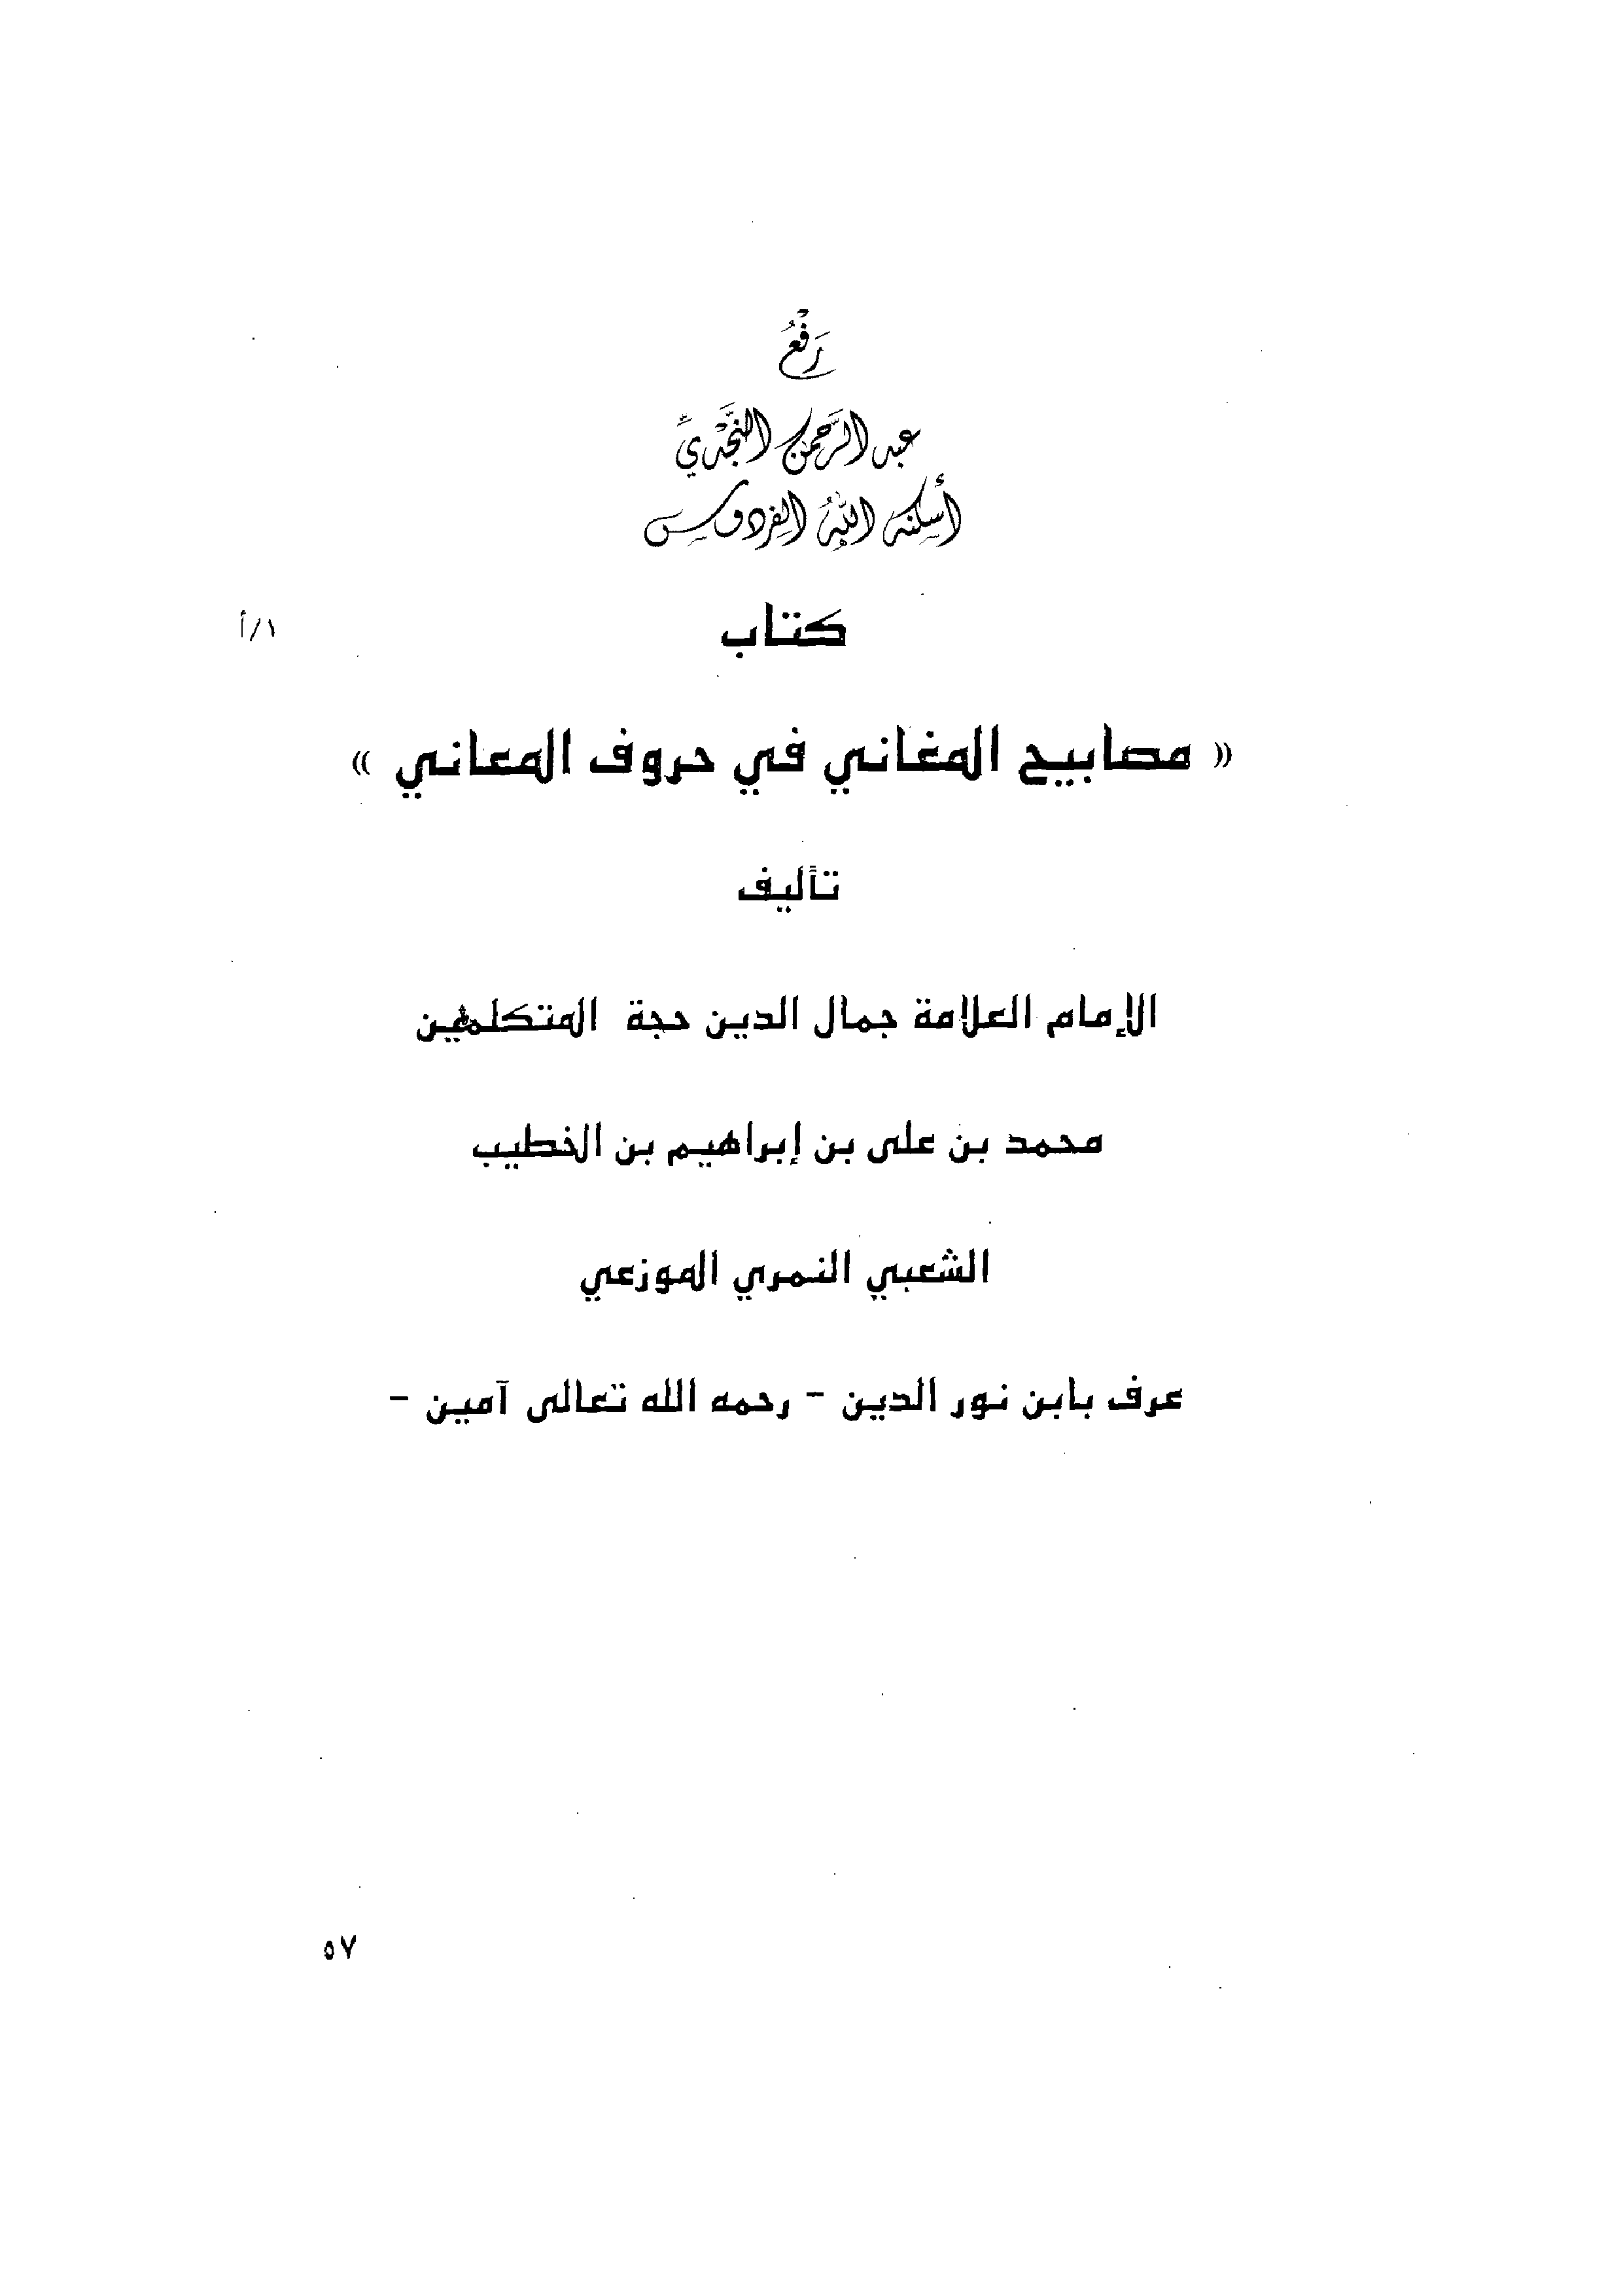 رَفْعُ
عبد الرَّحمن النَّجْديِّ
أسكنه اللهُ الفردوس
كتاب
١/أ
« مصابيح المغاني في حروف المعاني »
تأليف
الإمام العلامة جمال الدين حجة المتكلمين
محمد بن على بن إبراهيم بن الخطيب
الشعبي النمري الموزعي
عرف بابن نور الدين - رحمه الله تعالى آمين -
٥٧